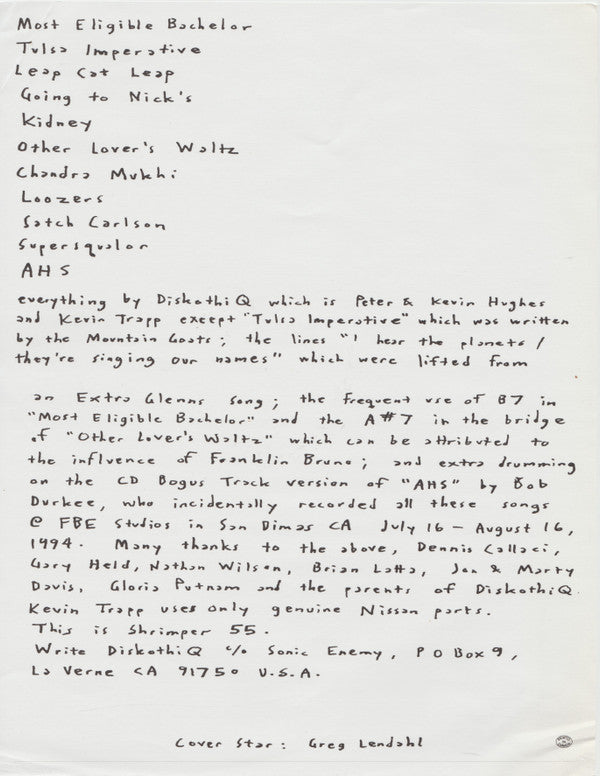 Most Eligible Bachelor
Tulsa Imperative
Leap Cat Leap
Going to Nick's
Kidney
Other Lover's Waltz
Chandra Mukhi
Loozers
Satch Carlson
Supersqualor
AHS
everything by DiskothiQ which is Peter & Kevin Hughes
and Kevin Trapp except "Tulsa Imperative" which was written
by the Mountain Goats; the lines "I hear the planets /
they're singing our names" which were lifted from
an Extra Glenns song; the frequent use of B7 in
"Most Eligible Bachelor" and the A#7 in the bridge
of "Other Lover's Waltz" which can be attributed to
the influence of Franklin Bruno; and extra drumming
on the CD Bogus Track version of "AHS" by Bob
Durkee, who incidentally recorded all these songs
@ FBE Studios in San Dimas CA July 16 - August 16,
1994. Many thanks to the above, Dennis Callaci,
Gary Held, Nathan Wilson, Brian Latta, Jan & Marty
Davis, Gloria Putnam and the parents of DiskothiQ.
Kevin Trapp uses only genuine Nissan parts.
This is Shrimper 55.
Write DiskothiQ c/o Sonic Enemy, PO Box 9,
La Verne CA 91750 U.S.A.
Cover Star: Greg Lendahl